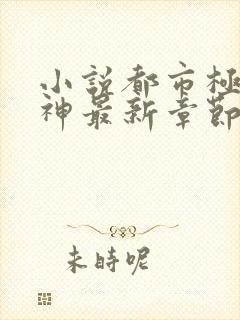 小說都市極
神最新章節
未時呢